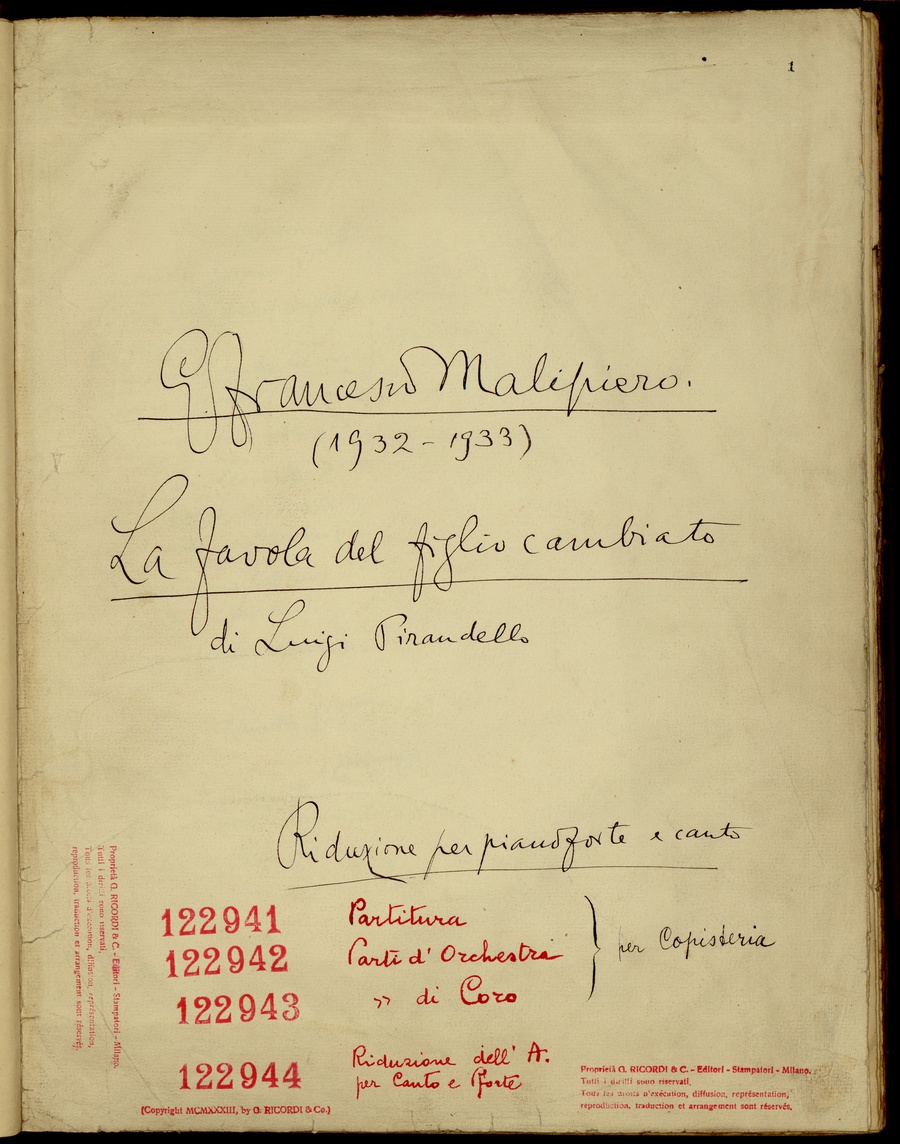 1
G. Francesco Malipiero.
(1932-1933)
La favola del figlio cambiato
di Luigi Pirandello
Riduzione per pianoforte e canto
122941 Partitura
122942 Parti d'Orchestra
122943 " di Coro
per Copisteria
122944 Riduzione dell'A.
per Canto e Pforte
(Copyright MCMXXXIII, by G. RICORDI & Co.)
Proprietà G. RICORDI & C. - Editori - Stampatori - Milano.
Tutti i diritti sono riservati.
Tous les droits d'exécution, diffusion, représentation,
reproduction, traduction et arrangement sont réservés.
Proprietà G. RICORDI & C. - Editori - Stampatori - Milano.
Tutti i diritti sono riservati.
Tous les droits d'exécution, diffusion, représentation,
reproduction, traduction et arrangement sont réservés.